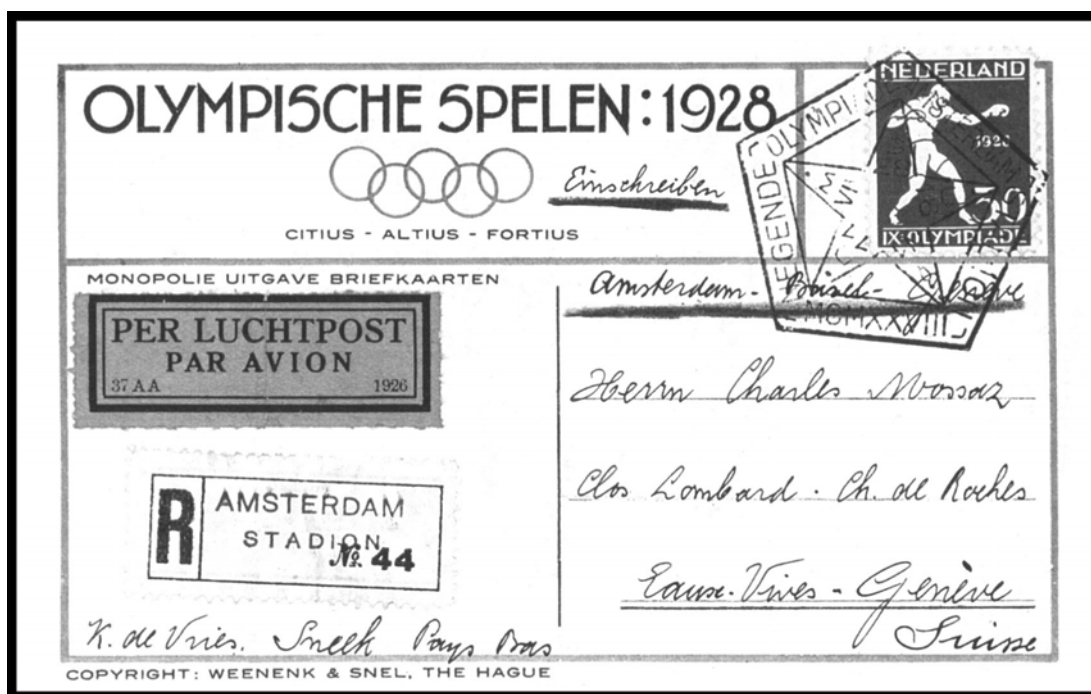 OLYMPISCHE SPELEN : 1928
Einschreiben
CITIUS - ALTIUS - FORTIUS
NEDERLAND
1928
30
IX OLYMPIADE
NEGENDE OLYMPI
MCMXXVIII
MONOPOLIE UITGAVE BRIEFKAARTEN
PER LUCHTPOST
PAR AVION
37 AA 1926
Amsterdam - Basel - Genève
Herrn Charles Mossaz
Clos Lombard - Ch. de Roches
Eaux-Vives - Genève
Suisse
R AMSTERDAM
STADION
No. 44
K. de Vries. Sneek Pays Bas
COPYRIGHT: WEENENK & SNEL, THE HAGUE